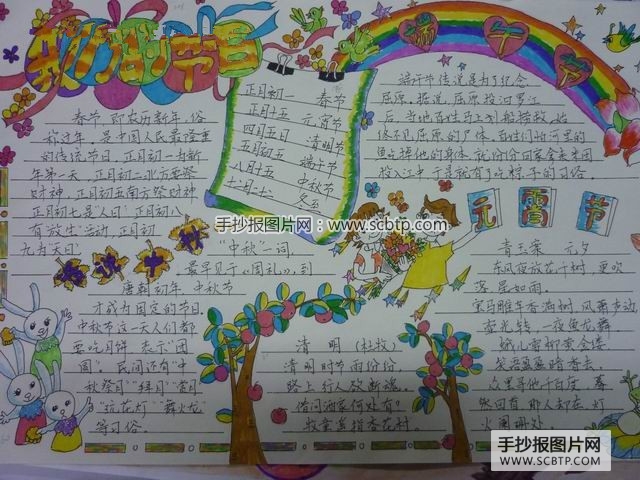 我们的节日
春节,即农历新年,俗
称过年,是中国人民最隆重
的传统节日,正月初一为新
年第一天,正月初二北方要祭
财神,正月初五南方祭财神
正月初七是"人日",正月初八
有"放生"活动,正月初
九为"天日"
正月初一 春节
正月十五 元宵节
四月五日 清明节
五月初五 端午节
八月十五 中秋节
端午节
端午节传说是为了纪念
屈原,据说,屈原投汨罗江
后,当地百姓马上划船捞救,始
终不见屈原的尸体,百姓们怕河里的
鱼吃掉他的身体,就纷纷回家拿米团
投入江中,于是就有了吃粽子的习俗。
手抄报图片网:www.scbtp.com
欢讲中秋
"中秋"一词,
最早见于《周礼》,到
唐朝初年,中秋节
才成为固定的节日
中秋节这一天人们都
要吃月饼,表示"团
圆"。民间还有"中
秋祭月""拜月""赏月
"拉花灯""舞火龙
等习俗。
清明(杜牧)
清明时节雨纷纷,
路上行人欲断魂。
借问酒家何处有?
牧童遥指杏花村。
元宵节
青玉案 元夕
东风夜放花千树,更吹
落,星如雨。
宝马雕车香满树,风箫声动,
壶光转,一夜鱼龙舞。
蛾儿雪柳黄金缕
笑语盈盈暗香去。
众里寻他千百度,蓦
然回首,那人却在,灯
火阑珊处。
手抄报图片网
WWW.SCBTP.COM